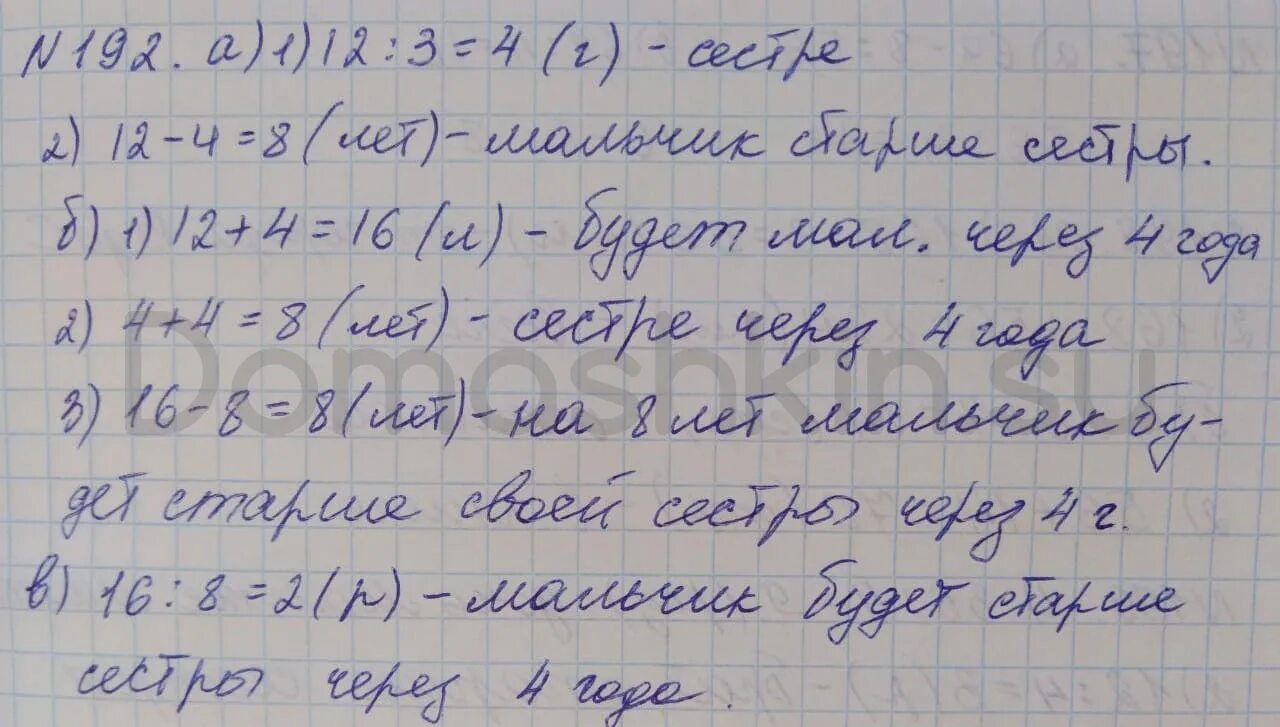 N192. а) 1) 12 : 3 = 4 (г) - сестре
2) 12 - 4 = 8 (лет) - мальчик старше сестры.
б) 1) 12 + 4 = 16 (л) - будет мал. через 4 года
2) 4 + 4 = 8 (лет) - сестре через 4 года
Domoshkin.su
3) 16 - 8 = 8 (лет) - на 8 лет мальчик бу-
дет старше своей сестры через 4 г.
в) 16 : 8 = 2 (р) - мальчик будет старше
сестры через 4 года.